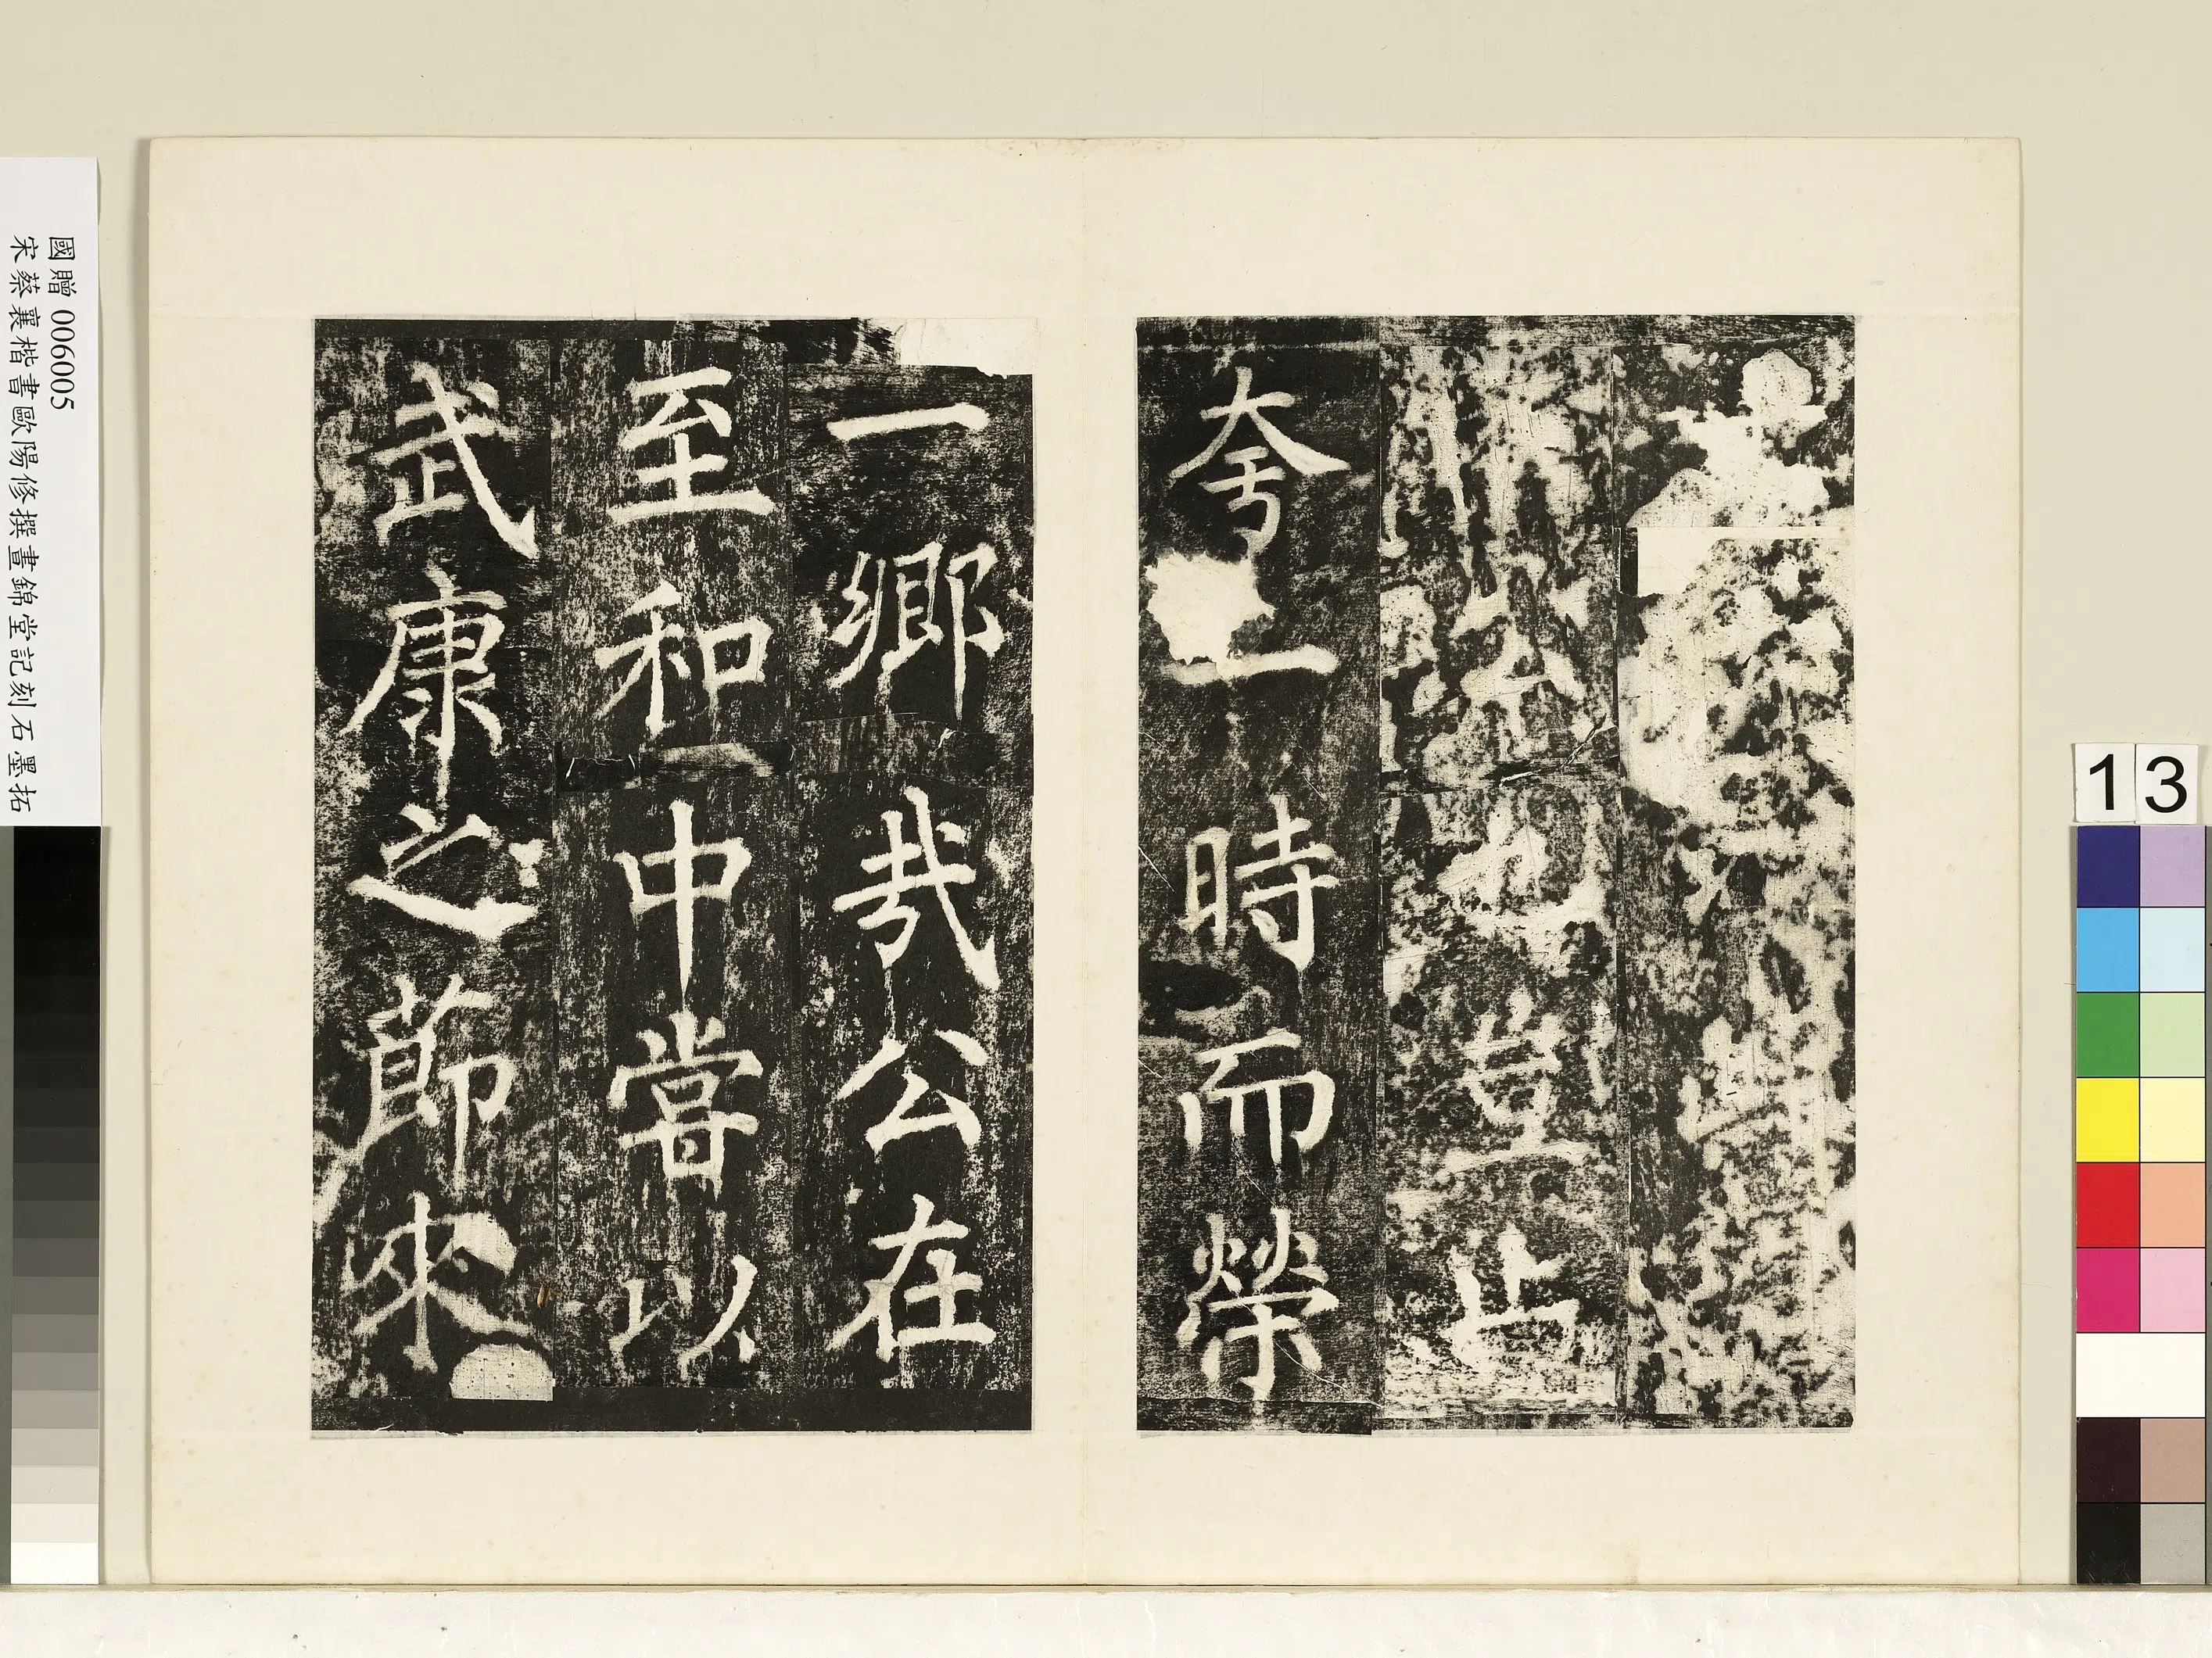 公也豈止
夸一時而榮
一鄉哉公在
至和中嘗以
武康之節來
國贈 006005
宋蔡襄楷書歐陽修撰晝錦堂記刻石墨拓
13